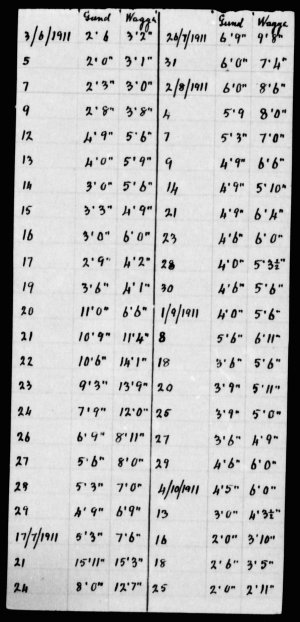 Gund Wagga Gund Wagga
3/6/1911 2'6 3'2" 26/7/1911 6'9" 9'8"
5 2'0" 3'1" 31 6'0" 7'4"
7 2'3" 3'0" 2/8/1911 6'0" 8'6"
9 2'8" 3'8" 4 5'9 8'0"
12 4'9" 5'6" 7 5'3" 7'0"
13 4'0" 5'9" 9 4'9" 6'6"
14 3'0" 5'6" 14 4'9" 5'10"
15 3'3" 4'9" 21 4'9" 6'4"
16 3'0" 6'0" 23 4'6" 6'0"
17 2'9" 4'2" 28 4'0" 5'3½"
19 3'6" 4'1" 30 4'6" 5'6"
20 11'0" 6'6" 1/9/1911 4'0" 5'6"
21 10'9" 11'4" 8 5'6" 6'11"
22 10'6" 14'1" 18 3'6" 5'6"
23 9'3" 13'9" 20 3'9" 5'11"
24 7'9" 12'0" 25 3'9" 5'0"
26 6'9" 8'11" 27 3'6" 4'9"
27 5'6" 8'0" 29 4'6" 6'0"
28 5'3" 7'0" 4/10/1911 4'5" 6'0"
29 4'9" 6'9" 13 3'0" 4'3½"
17/7/1911 5'3" 7'6" 16 2'0" 3'10"
21 15'11" 15'3" 18 2'6" 3'5"
24 8'0" 12'7" 25 2'0" 2'11"